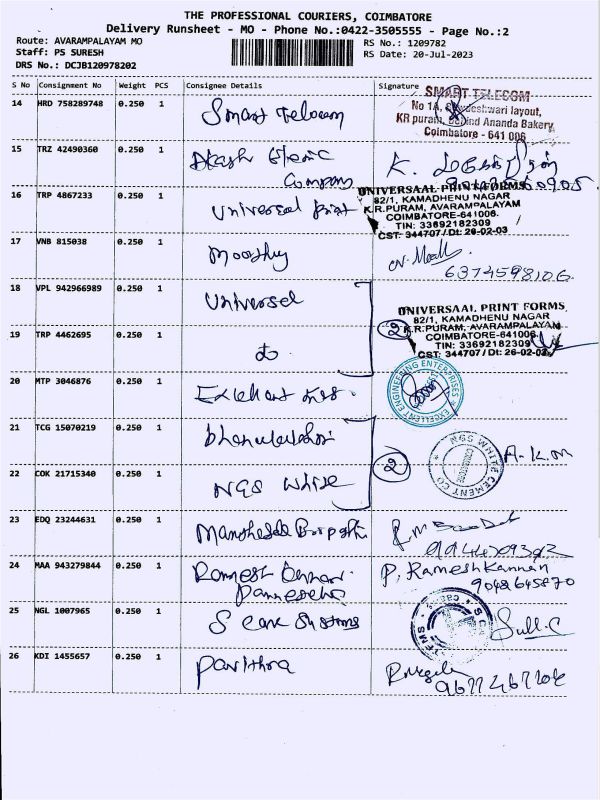 THE PROFESSIONAL COURIERS, COIMBATORE
Delivery Runsheet - MO - Phone No.:0422-3505555 - Page No.:2
Route: AVARAMPALAYAM MO
RS No.: 1209782
Staff: PS SURESH
RS Date: 20-Jul-2023
DRS No.: DCJB120978202
S No Consignment No Weight PCS Consignee Details Signature
14 HRD 758289748 0.250 1 Smart Telecom
SMART TELECOM
KR puram, Behind Ananda Bakery,
Coimbatore - 641 006
15 TRZ 42490360 0.250 1 Akash
Company
16 TRP 4867233 0.250 1 Universal Print
UNIVERSAAL PRINT FORMS
82/1, KAMADHENU NAGAR
K.R.PURAM, AVARAMPALAYAM
COIMBATORE-641006.
TIN: 33692182309
CST: 344707 / Dt: 26-02-03
17 VNB 815038 0.250 1 Moorthy
6374598106
18 VPL 942966989 0.250 1 Universal
UNIVERSAAL PRINT FORMS
82/1, KAMADHENU NAGAR
K.R.PURAM, AVARAMPALAYAM
COIMBATORE-641006
TIN: 33692182309
CST: 344707 / Dt: 26-02-03
19 TRP 4462695 0.250 1 do
2
20 MTP 3046876 0.250 1
EXCELLENT ENGINEERING ENTERPRISES
21 TCG 15070219 0.250 1
2
NGS WHITE CEMENT CO
COIMBATORE
A.K.M
22 COK 21715340 0.250 1 NGS White
23 EDQ 23244631 0.250 1
24 MAA 943279844 0.250 1 Ramesh Kannan
P. RameshKannan
9042645870
25 NGL 1007965 0.250 1 S Cane Systems
26 KDI 1455657 0.250 1 Pavithra